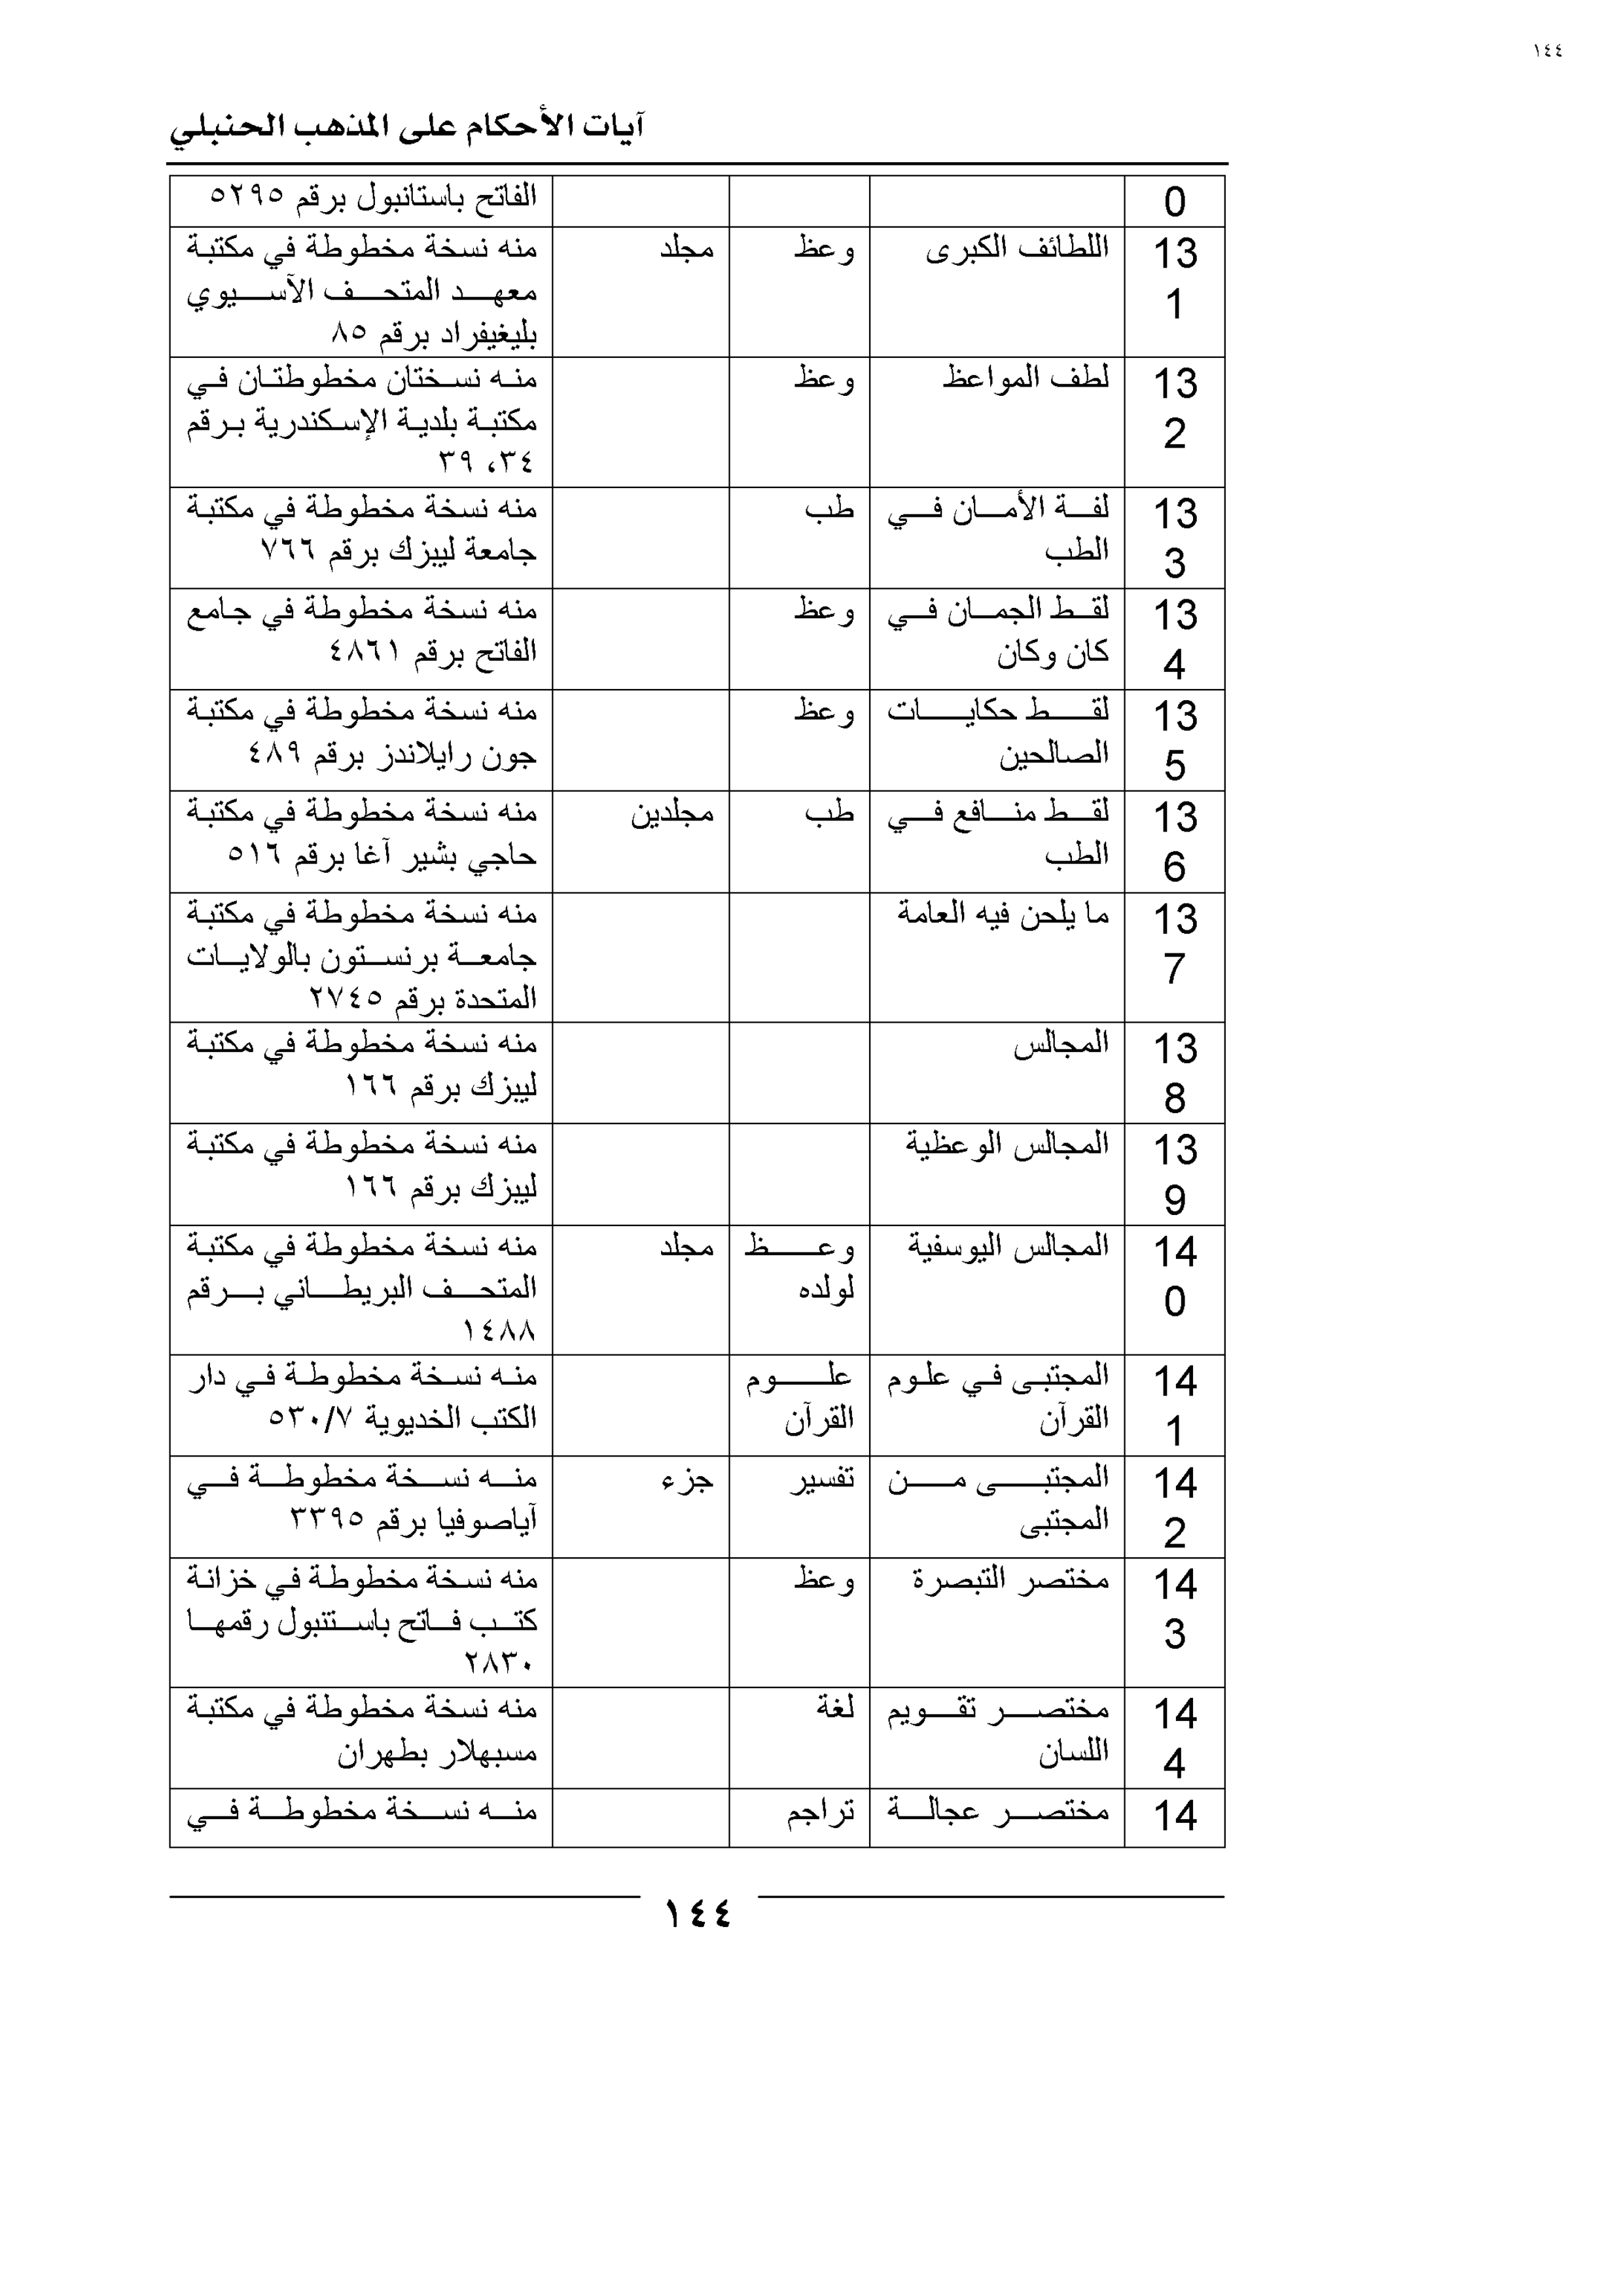 ١٤٤
آيات الأحكام على المذهب الحنبلي
0 الفاتح باستانبول برقم ٥٢٩٥
13 اللطائف الكبرى وعظ مجلد منه نسخة مخطوطة في مكتبة
1 معهد المتحف الآسيوي
بليغيفراد برقم ٨٥
13 لطف المواعظ وعظ منه نسختان مخطوطتان في
2 مكتبة بلدية الإسكندرية برقم
٣٤، ٣٩
13 لفة الأمان في طب منه نسخة مخطوطة في مكتبة
3 الطب جامعة ليبزك برقم ٧٦٦
13 لقط الجمان في وعظ منه نسخة مخطوطة في جامع
4 كان وكان الفاتح برقم ٤٨٦١
13 لقط حكايات وعظ منه نسخة مخطوطة في مكتبة
5 الصالحين جون رايلاندز برقم ٤٨٩
13 لقط منافع في طب مجلدين منه نسخة مخطوطة في مكتبة
6 الطب حاجي بشير آغا برقم ٥١٦
13 ما يلحن فيه العامة منه نسخة مخطوطة في مكتبة
7 جامعة برنستون بالولايات
المتحدة برقم ٢٧٤٥
13 المجالس منه نسخة مخطوطة في مكتبة
8 ليبزك برقم ١٦٦
13 المجالس الوعظية منه نسخة مخطوطة في مكتبة
9 ليبزك برقم ١٦٦
14 المجالس اليوسفية وعظ مجلد منه نسخة مخطوطة في مكتبة
0 لولده المتحف البريطاني برقم
١٤٨٨
14 المجتبى في علوم علوم منه نسخة مخطوطة في دار
1 القرآن القرآن الكتب الخديوية ٥٣٠/٧
14 المجتبى من تفسير جزء منه نسخة مخطوطة في
2 المجتبى آياصوفيا برقم ٣٣٩٥
14 مختصر التبصرة وعظ منه نسخة مخطوطة في خزانة
3 كتب فاتح باستنبول رقمها
٢٨٣٠
14 مختصر تقويم لغة منه نسخة مخطوطة في مكتبة
4 اللسان مسبهلار بطهران
14 مختصر عجالة تراجم منه نسخة مخطوطة في
١٤٤